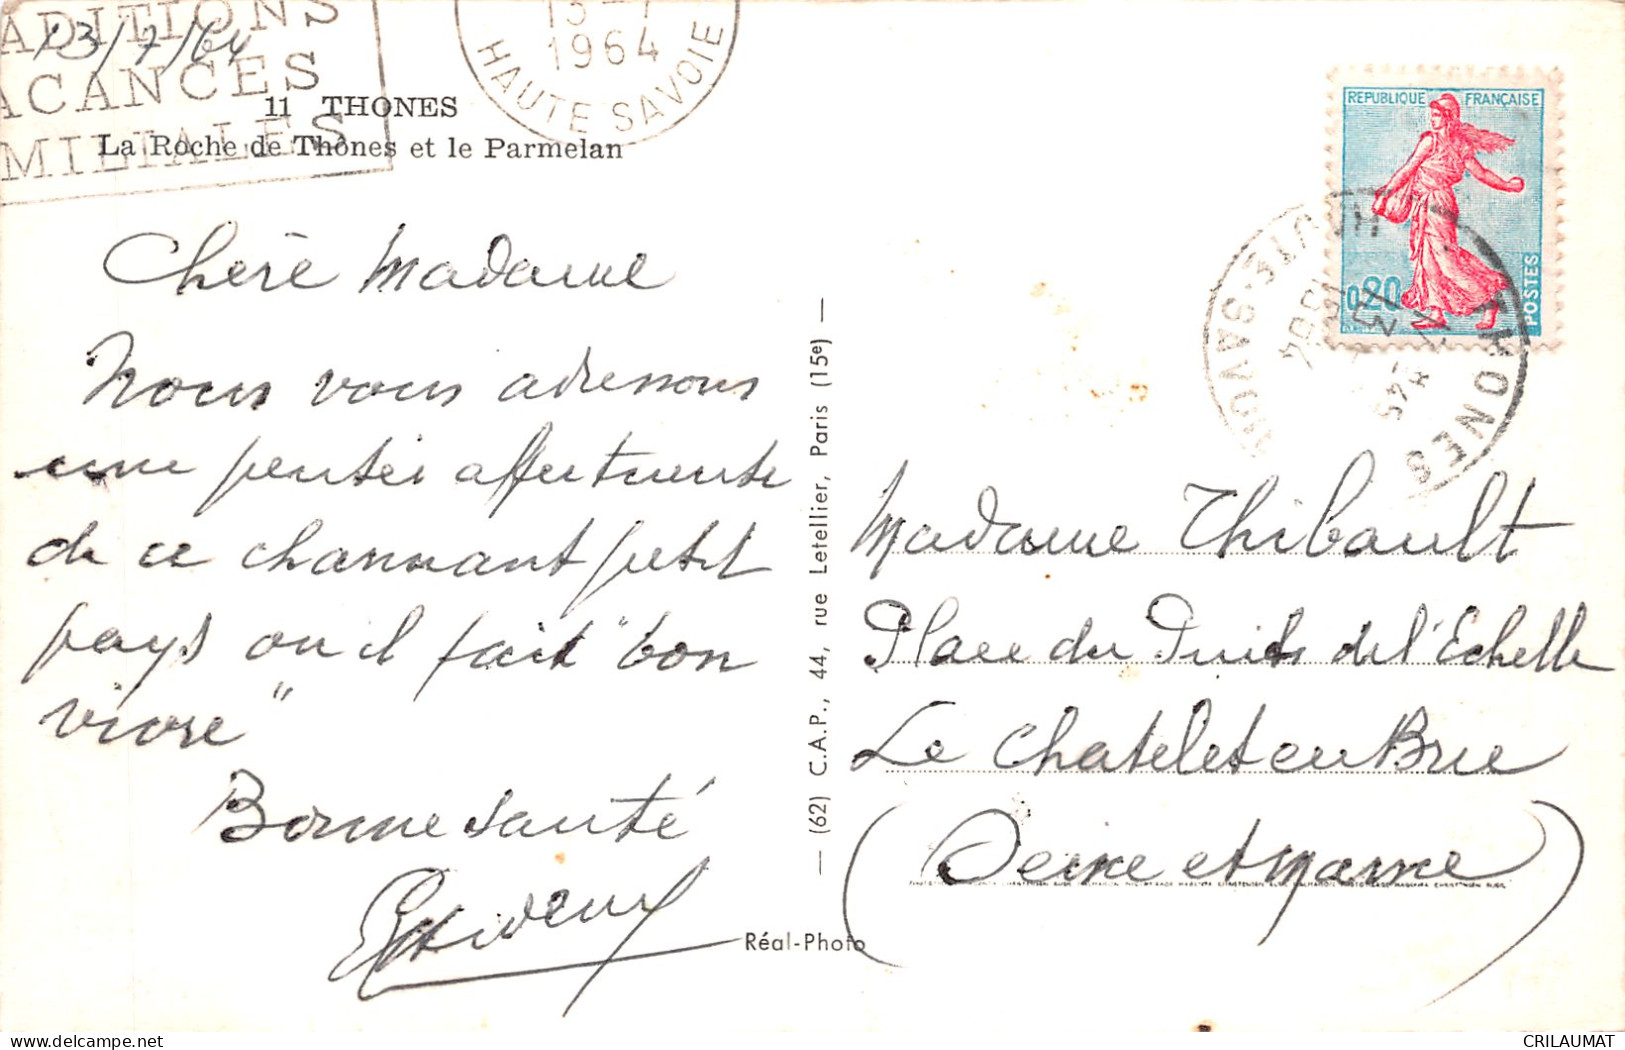 ADITIONS
ACANCES
MILIALES
13/7/64
13-7
1964
HAUTE SAVOIE
11 THONES
La Roche de Thônes et le Parmelan
Chère Madame
Nous vous adressons
une pensée affectueuse
de ce charmant petit
pays ou il fait "bon
vivre"
Bonne santé
— (62) C.A.P., 44, rue Letellier, Paris (15e) —
Réal-Photo
REPUBLIQUE FRANÇAISE
0,20
POSTES
THONES
HAUTE-SAVOIE
1964
Madame Thibault
Place du Puits de l'Echelle
Le Chatelet en Brie
(Seine et Marne)
CRILAUMAT